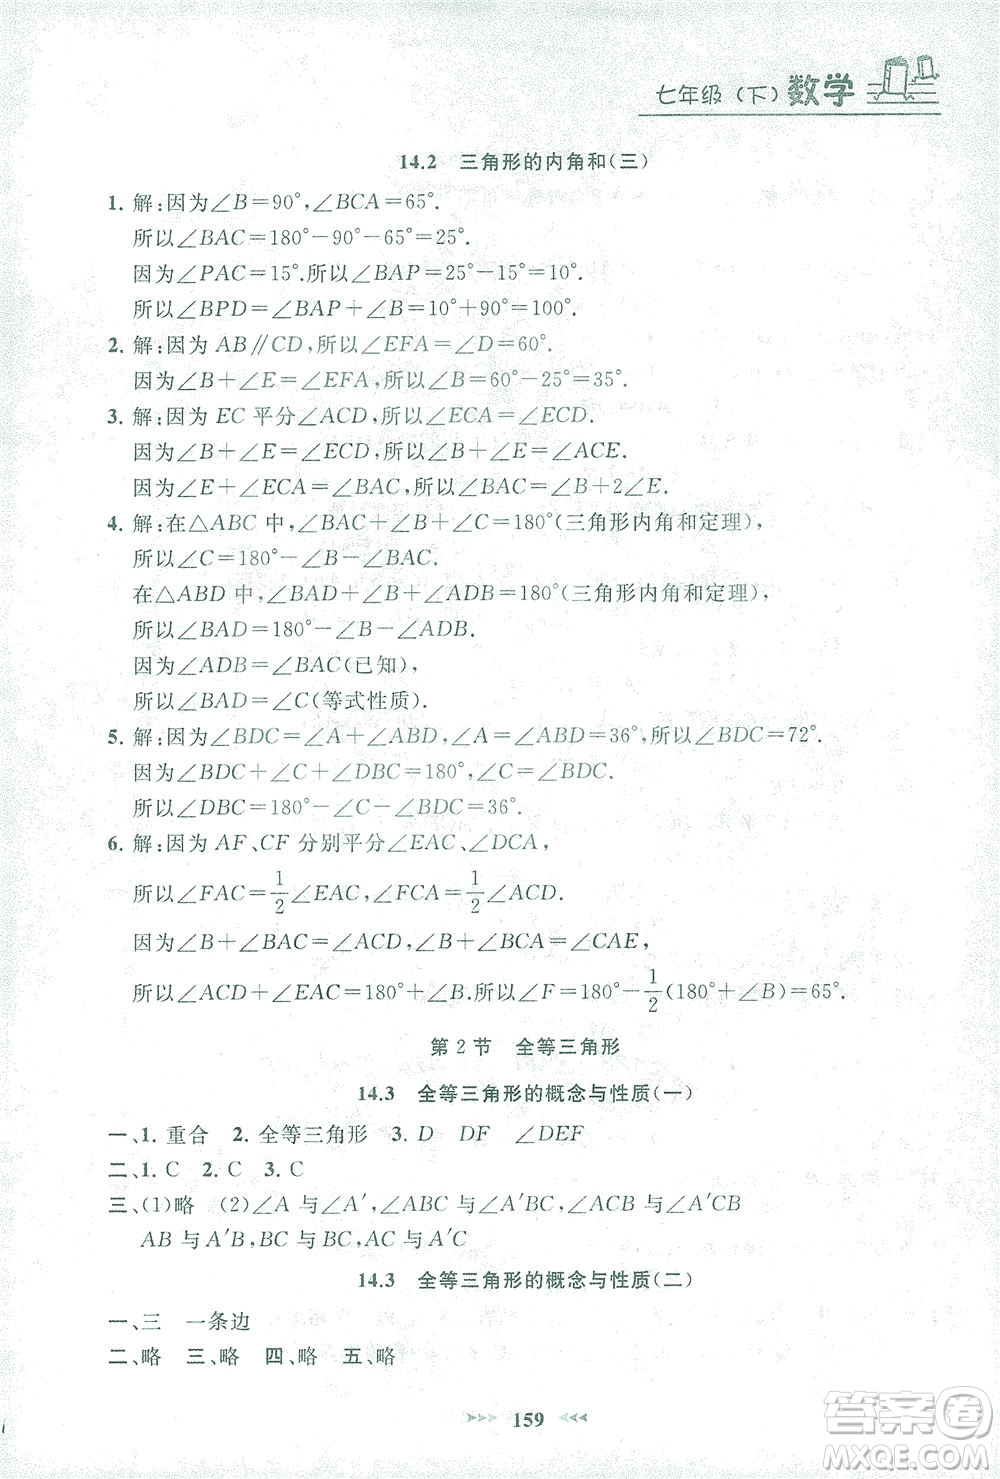 七年级（下）数学
14.2 三角形的内角和(三)
1. 解:因为∠B=90°,∠BCA=65°.
所以∠BAC=180°-90°-65°=25°.
因为∠PAC=15°.所以∠BAP=25°-15°=10°.
所以∠BPD=∠BAP+∠B=10°+90°=100°.
2. 解:因为 AB∥CD,所以∠EFA=∠D=60°.
因为∠B+∠E=∠EFA,所以∠B=60°-25°=35°.
3. 解:因为 EC 平分∠ACD,所以∠ECA=∠ECD.
因为∠B+∠E=∠ECD,所以∠B+∠E=∠ACE.
因为∠E+∠ECA=∠BAC,所以∠BAC=∠B+2∠E.
4. 解:在△ABC 中,∠BAC+∠B+∠C=180°(三角形内角和定理),
所以∠C=180°-∠B-∠BAC.
在△ABD 中,∠BAD+∠B+∠ADB=180°(三角形内角和定理),
所以∠BAD=180°-∠B-∠ADB.
因为∠ADB=∠BAC(已知),
所以∠BAD=∠C(等式性质).
5. 解:因为∠BDC=∠A+∠ABD,∠A=∠ABD=36°,所以∠BDC=72°.
因为∠BDC+∠C+∠DBC=180°,∠C=∠BDC,
所以∠DBC=180°-∠C-∠BDC=36°.
6. 解:因为 AF、CF 分别平分∠EAC、∠DCA,
所以∠FAC=1/2∠EAC,∠FCA=1/2∠ACD.
因为∠B+∠BAC=∠ACD,∠B+∠BCA=∠CAE,
所以∠ACD+∠EAC=180°+∠B.所以∠F=180°-1/2(180°+∠B)=65°.
第 2 节 全等三角形
14.3 全等三角形的概念与性质(一)
一、1. 重合 2. 全等三角形 3. D DF ∠DEF
二、1. C 2. C 3. C
三、(1)略 (2)∠A 与∠A′,∠ABC 与∠A′BC,∠ACB 与∠A′CB
AB 与 A′B,BC 与 BC,AC 与 A′C
14.3 全等三角形的概念与性质(二)
一、三 一条边
二、略 三、略 四、略 五、略
159
答案圈
MXQE.COM